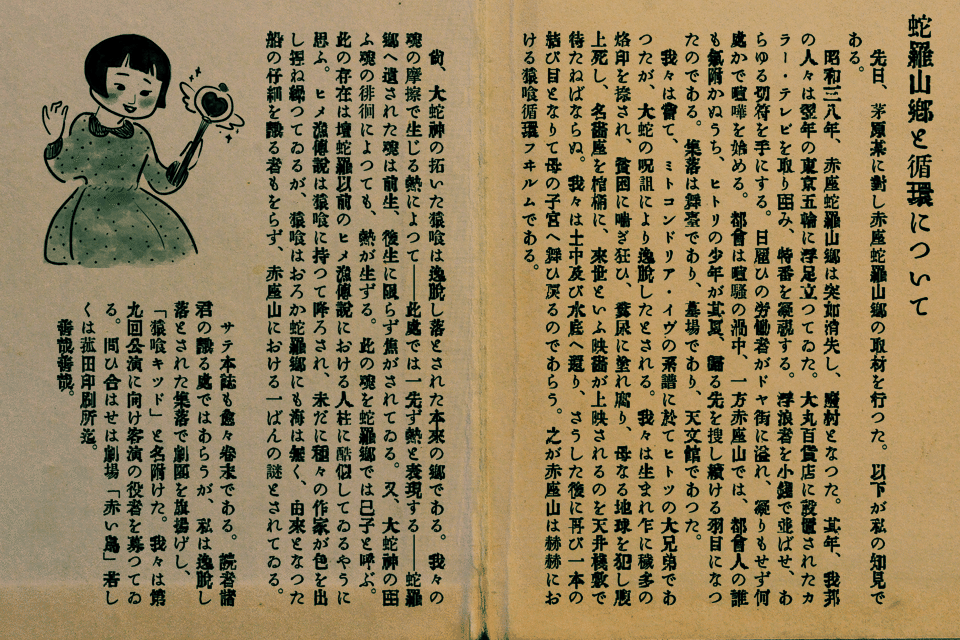 蛇羅山郷と循環について
先日、茅原某に對し赤座蛇羅山郷の取材を行つた。以下が私の知見で
ある。
昭和三八年、赤座蛇羅山郷は突如消失し、廢村となつた。其年、我邦
の人々は翌年の東京五輪に浮足立つてゐた。大丸百貨店に設置されたカ
ラー・テレビを取り囲み、特番を凝視する。浮浪者を小錢で並ばせ、あ
らゆる切符を手にする。日雇ひの労働者がドヤ街に溢れ、凝りもせず何
處かで喧嘩を始める。都會は喧騒の渦中、一方赤座山では、都會人の誰
も氣附かぬうち、ヒトリの少年が其夏、謡る先を捜し續ける羽目になつ
たのである。集落は舞臺であり、墓場であり、天文館であつた。
我々は嘗て、ミトコンドリア・イヴの系譜に於てヒトツの大兄弟であ
つたが、大蛇の呪詛により逸脱したとされる。我々は生まれ乍に穢多の
烙印を捺され、貧困に喘ぎ狂ひ、糞尿に塗れ腐り、母なる地球を犯し腹
上死し、名画座を棺桶に、來世といふ映画が上映されるのを天井棧敷で
待たねばならぬ。我々は土中及び水底へ還り、さうした後に再び一本の
結び目となりて母の子宮へ舞ひ戻るのであらう。之が赤座山は赫赫にお
ける猿喰循環フヰルムである。
尙、大蛇神の拓いた猿喰は逸脱し落とされた本來の郷である。我々の
魂の摩擦で生じる熱によつて――此處では一先ず熱と表現する――蛇羅
郷へ還された魂は前生、後生に限らず焦がされてゐる。又、大蛇神の囲
ふ魂の徘徊によつても、熱が生ずる。此の魂を蛇羅郷では巳子と呼ぶ。
此の存在は壇蛇羅以前のヒメ漁傳說における人柱に酷似してゐるやうに
思ふ。ヒメ漁傳說は猿喰に持つて降ろされ、未だに種々の作家が色を出
し捏ね繰つてゐるが、猿喰はおろか蛇羅郷にも海は無く、由來となつた
船の仔細を識る者もをらず、赤座山における一ばんの謎とされてゐる。
サテ本誌も愈々卷末である。読者諸
君の識る處ではあらうが、私は逸脱し
落とされた集落で劇團を旗揚げし、
「猿喰キッド」と名附けた。我々は第
九回公演に向け客演の役者を募つてゐ
る。問ひ合はせは劇場「赤い鳥」若し
くは菰田印刷所迄。
善哉善哉。